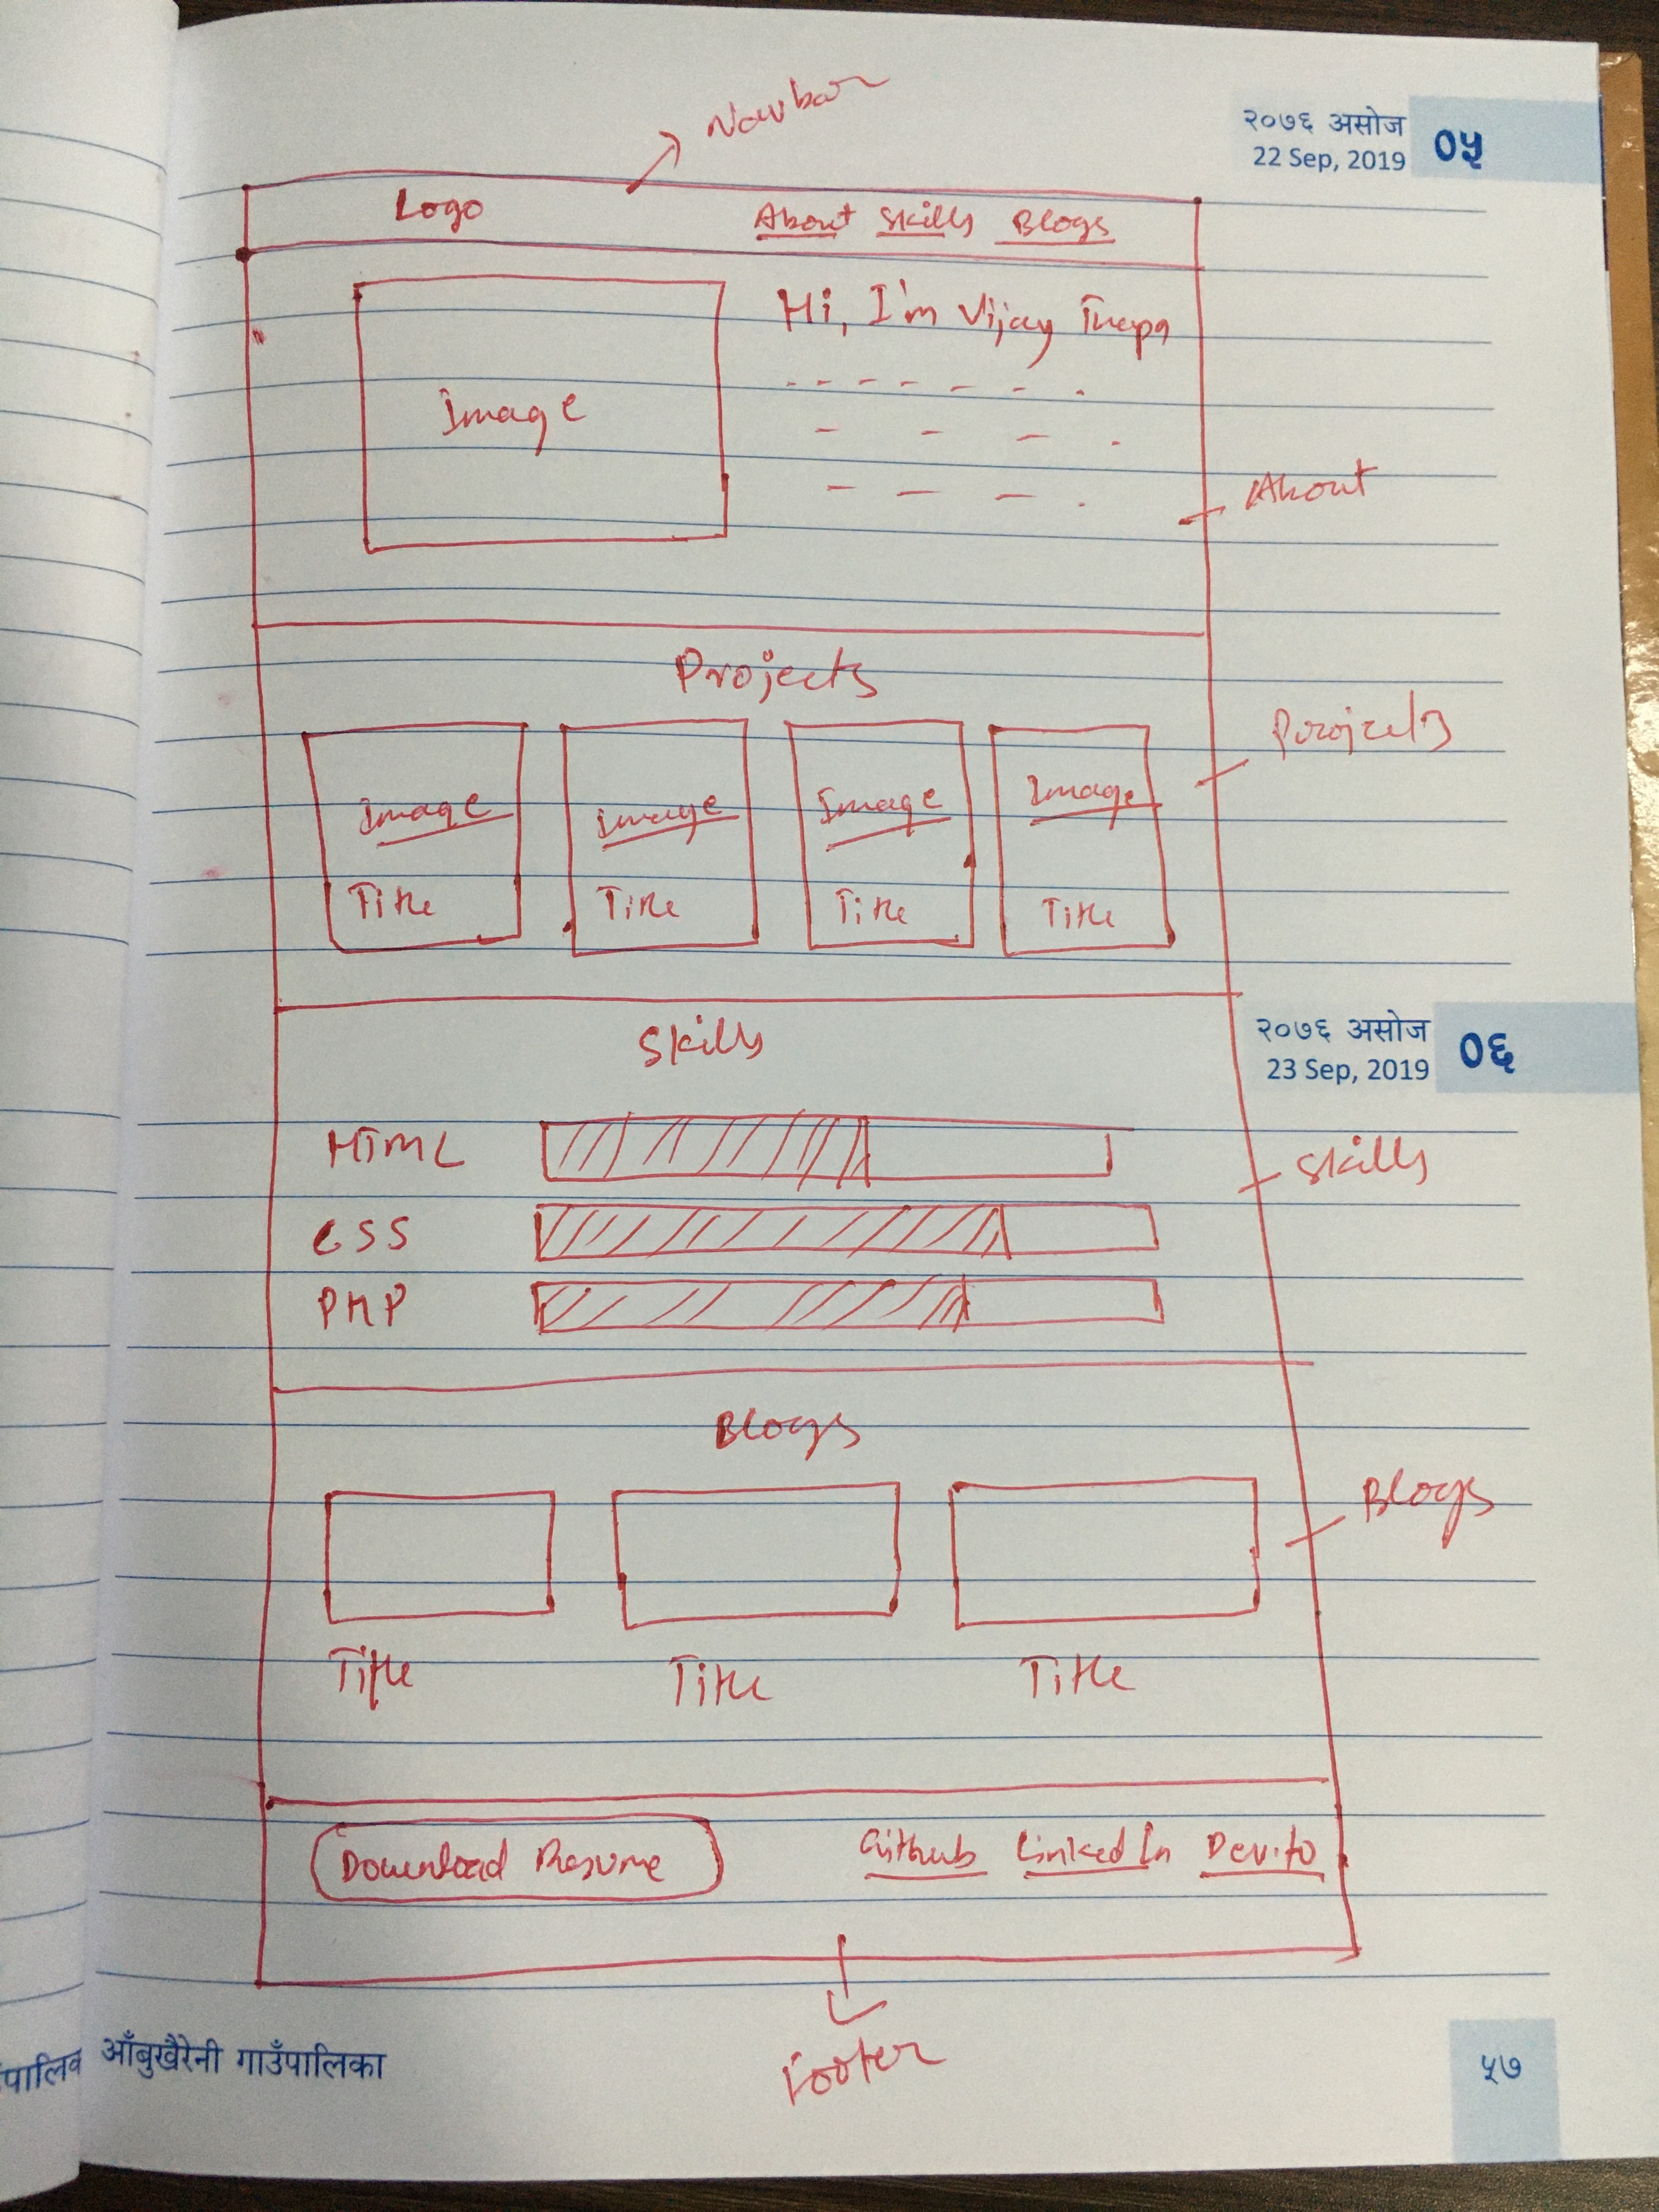 Navbar
२०७६ असोज
22 Sep, 2019
०५
Logo
About Skills Blogs
Hi, I'm Vijay Thapa
Image
About
Projects
Projects
Image Image Image Image
Title Title Title Title
Skills
२०७६ असोज
23 Sep, 2019
०६
HTML
Skills
CSS
PHP
Blogs
Blogs
Title Title Title
Download Resume
Github LinkedIn Dev.to
Footer
आँबुखैरेनी गाउँपालिका
५७